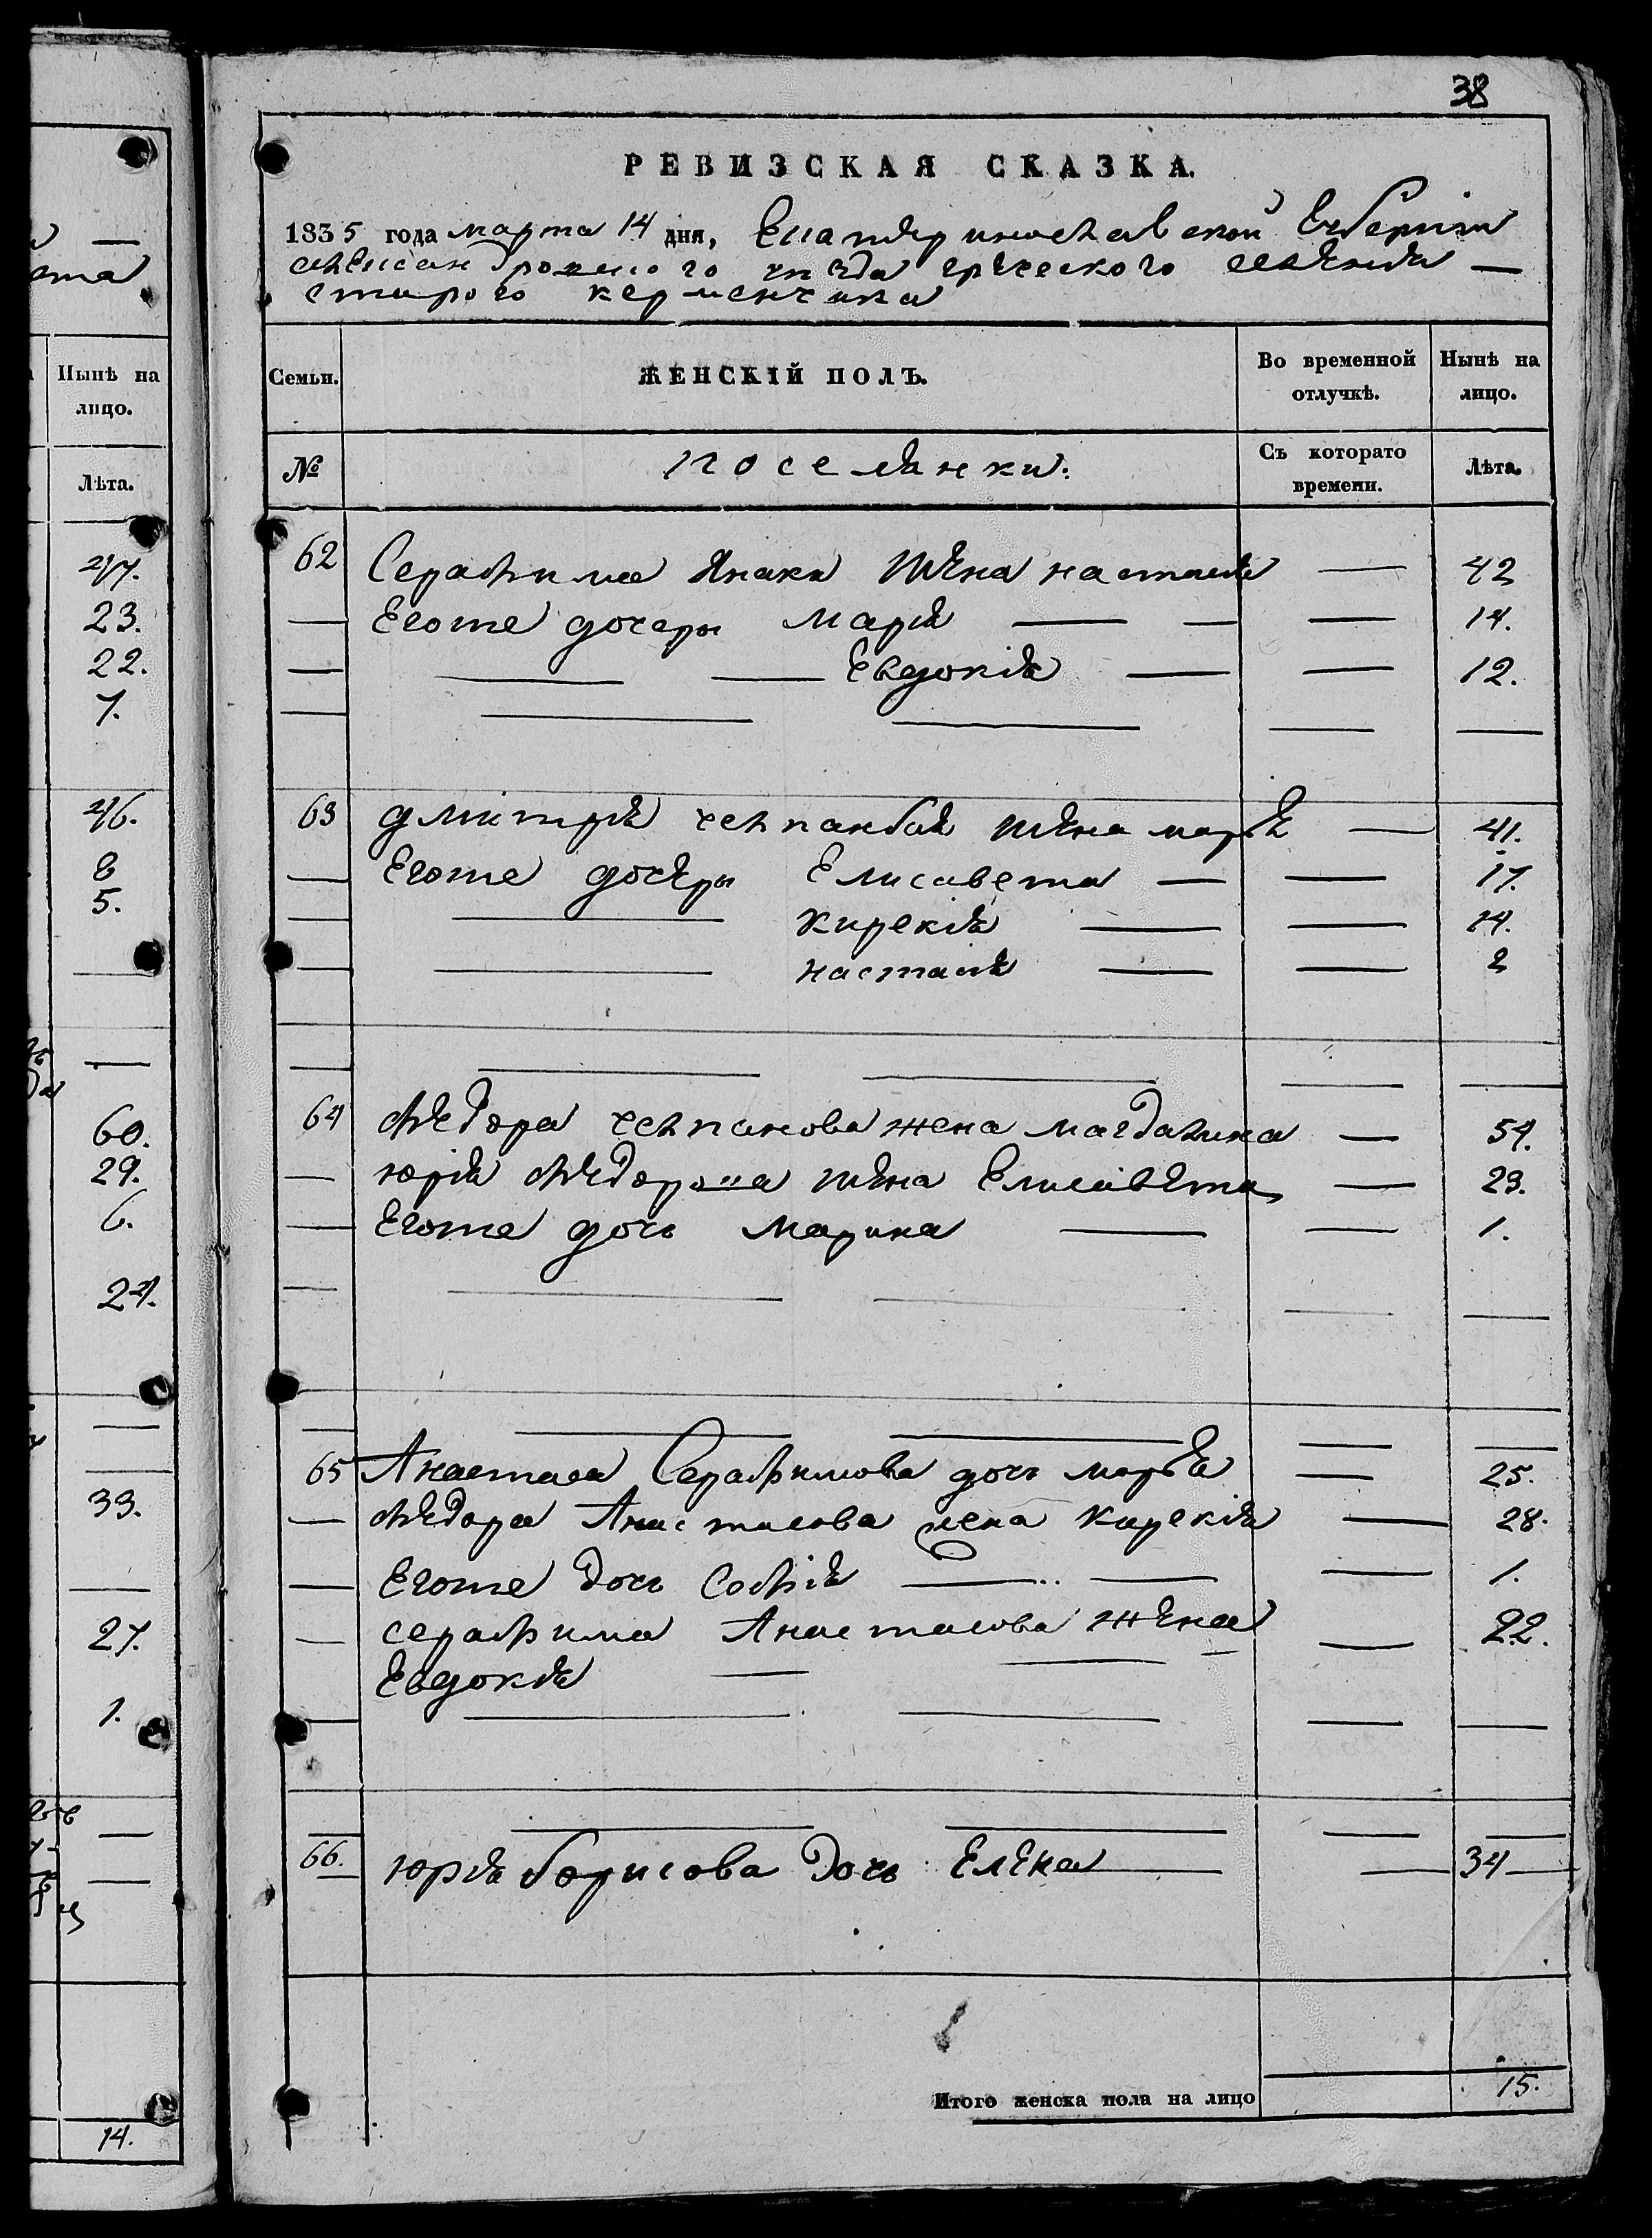 38
РЕВИЗСКАЯ СКАЗКА.
1835 года марта 14 дня, Екатеринославской Губернии
александровского уезда греческого селения —
старого керменчика
Нынѣ на
лицо.
Лѣта.
27.
23.
22.
7.
26.
8
5.
60.
29.
6.
24.
33.
27.
1.
14.
Семьи. ЖЕНСКІЙ ПОЛЪ. Во временной отлучкѣ. Нынѣ на лицо.
№ поселянки: Съ котораго времени. Лѣта.
62 Серафима Янаки жена настасія — 42
— Егоже дочеры Марія — — — 14.
— — — Евдокія — — 12.
63 дмитрія челпанбая жена марія — 41.
— Егоже дочеры Елисавета — — 17.
— — кирекія — — 14.
— — настасія — — 2
64 Федора челпанова жена магдалина — 54.
— юрія Федорова жена Елисавета — 23.
— Егоже дочь Марина — — 1.
65 Анастаса Серафимова дочь марія — 25.
— Федора Анастасова жена Кирекія — 28.
— Егоже дочь Софія — — — 1.
— серафима Анастасова жена — 22.
Евдокія — —
66. юрія борисова дочь Елена — — 34 —
Итого женска пола на лицо 15.